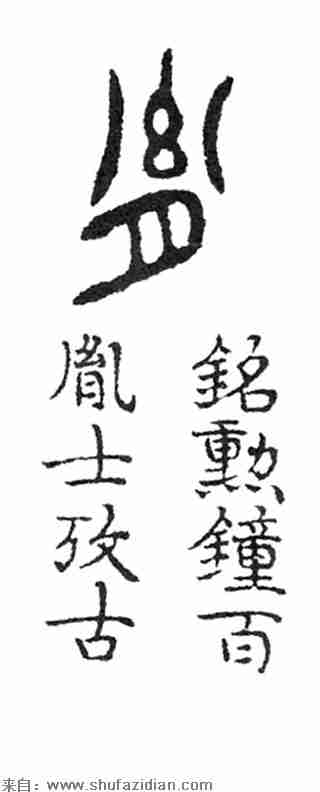 胤
銘勲鐘百
胤士攷古
来自：www.shufazidian.com